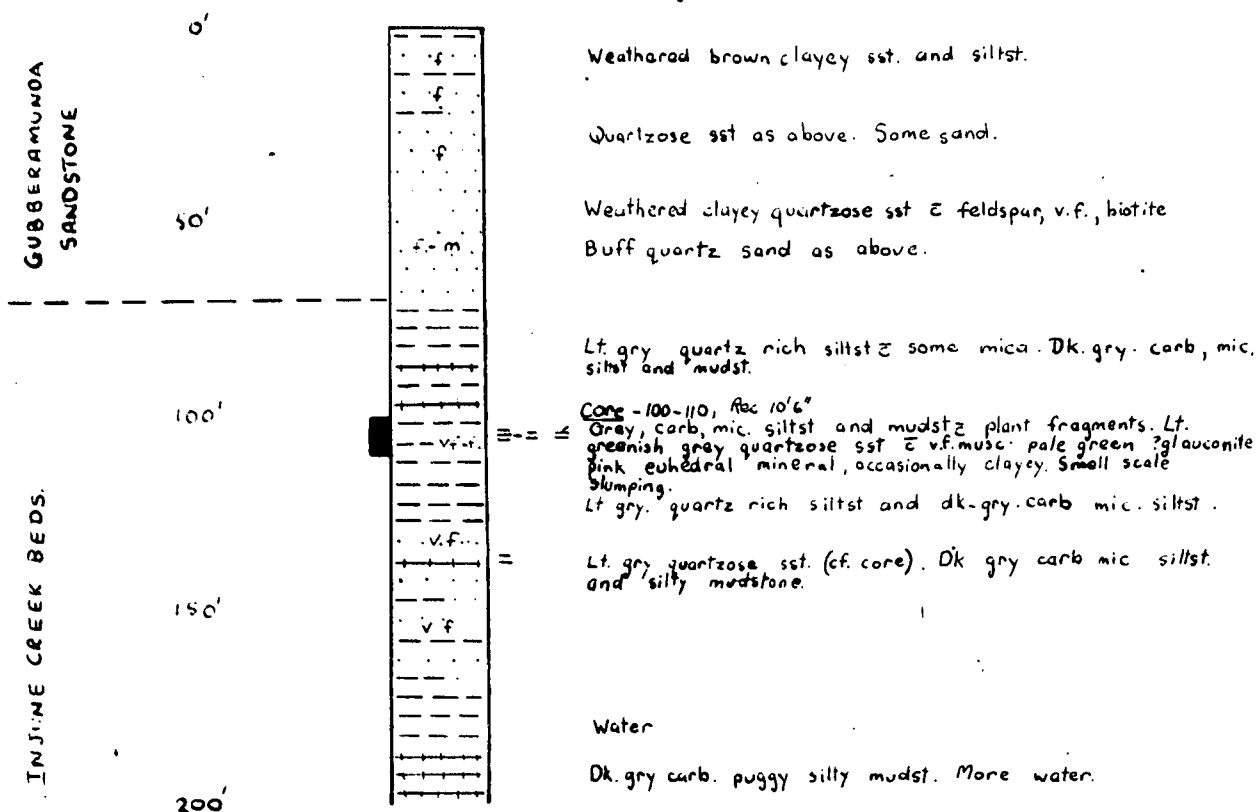 0'
GUBBERAMUNDA
SANDSTONE
50'
100'
INJUNE CREEK BEDS.
150'
200'
f
f
f
f - m
v.f.
v.f
Weathered brown clayey sst. and siltst.
Quartzose sst as above. Some sand.
Weathered clayey quartzose sst c̄ feldspar, v.f., biotite
Buff quartz sand as above.
Lt. gry quartz rich siltst c̄ some mica. Dk. gry. carb, mic.
siltst and mudst.
Core - 100-110, Rec 10'6"
Gray, carb, mic. siltst and mudst c̄ plant fragments. Lt.
greenish gray quartzose sst c̄ v.f. musc. pale green ?glauconite
pink euhedral mineral, occasionally clayey. Small scale
slumping.
Lt gry. quartz rich siltst and dk-gry. carb mic. siltst.
Lt. gry quartzose sst. (cf. core). Dk gry carb mic siltst.
and silty mudstone.
Water
Dk. gry carb. puggy silty mudst. More water.